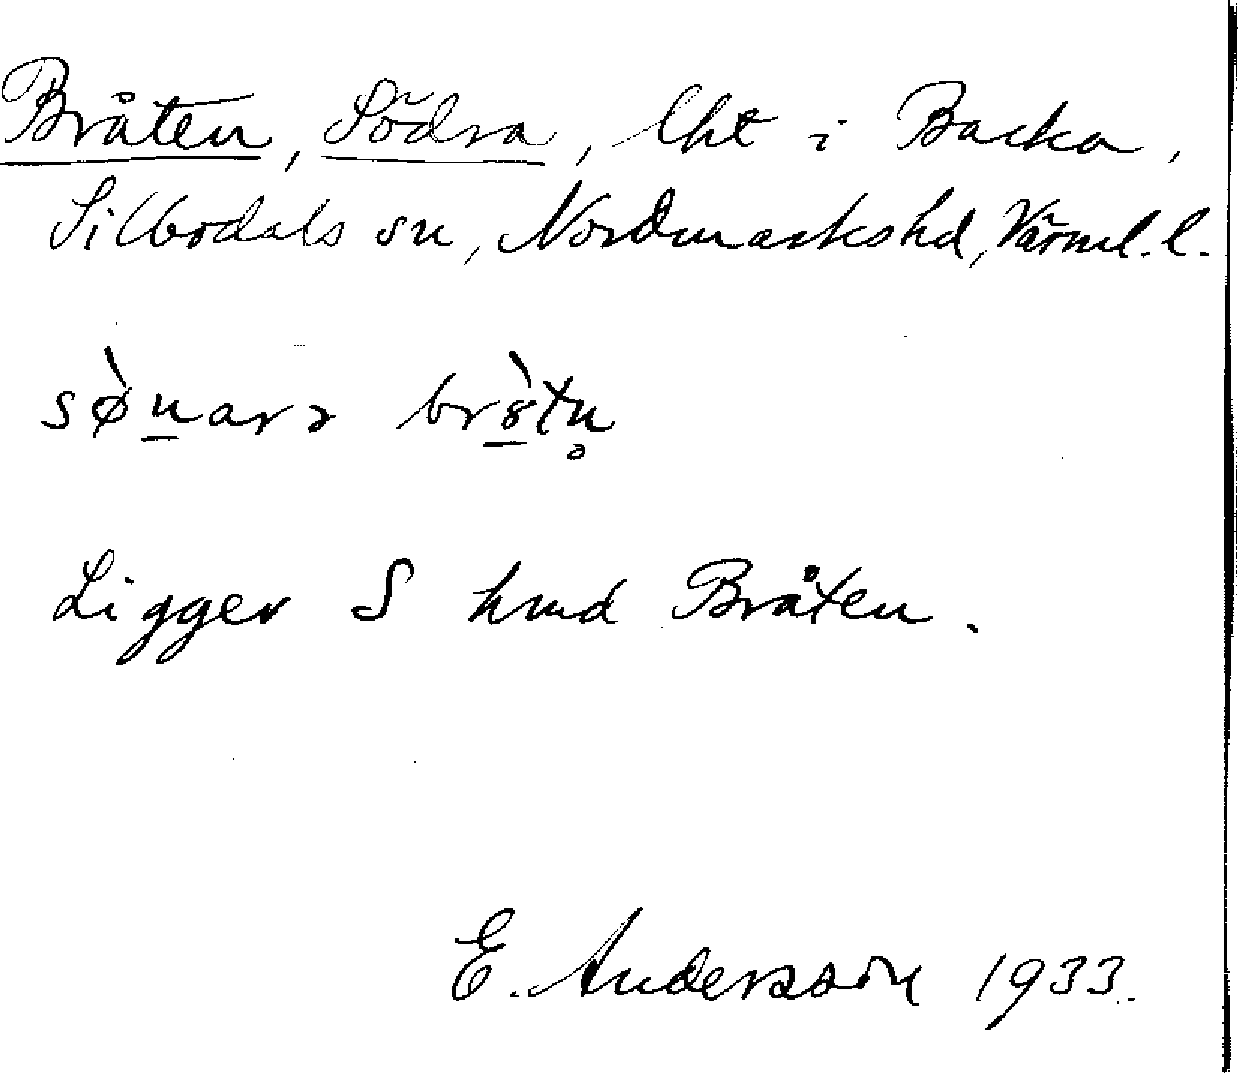 Bråten, Södra, lht i Backa,
Silbodals sn, Nordmarkshd, Värml. l.
sø̀n̲arə brò̲tn̥
Ligger S hmd Bråten.
E. Andersson 1933.